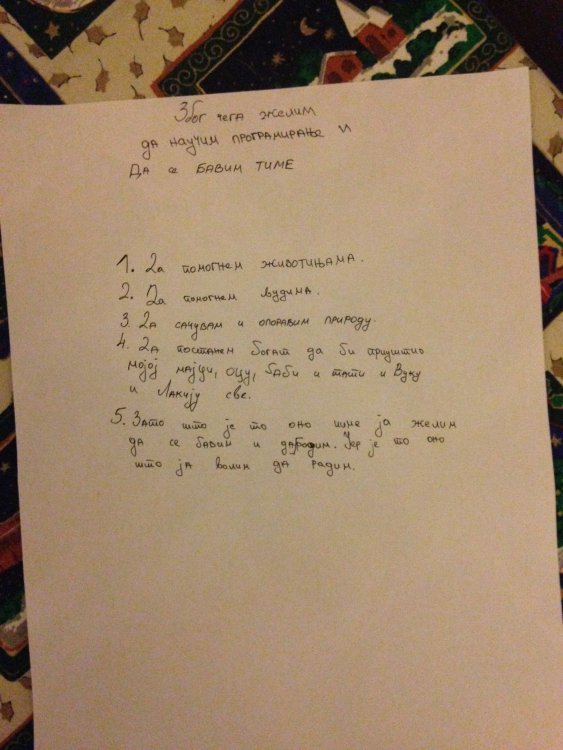 Због чега желим
да научим програмирање и
Да се бавим тиме
1. Да помогнем животињама.
2. Да помогнем људима.
3. Да сачувам и опоравим природу.
4. Да постанем богат да би приуштио
мојој мајци, оцу, баби и тати и Вуку
и Лакију све.
5. Зато што је то оно чиме ја желим
да се бавим и да радим. Јер је то оно
што ја волим да радим.